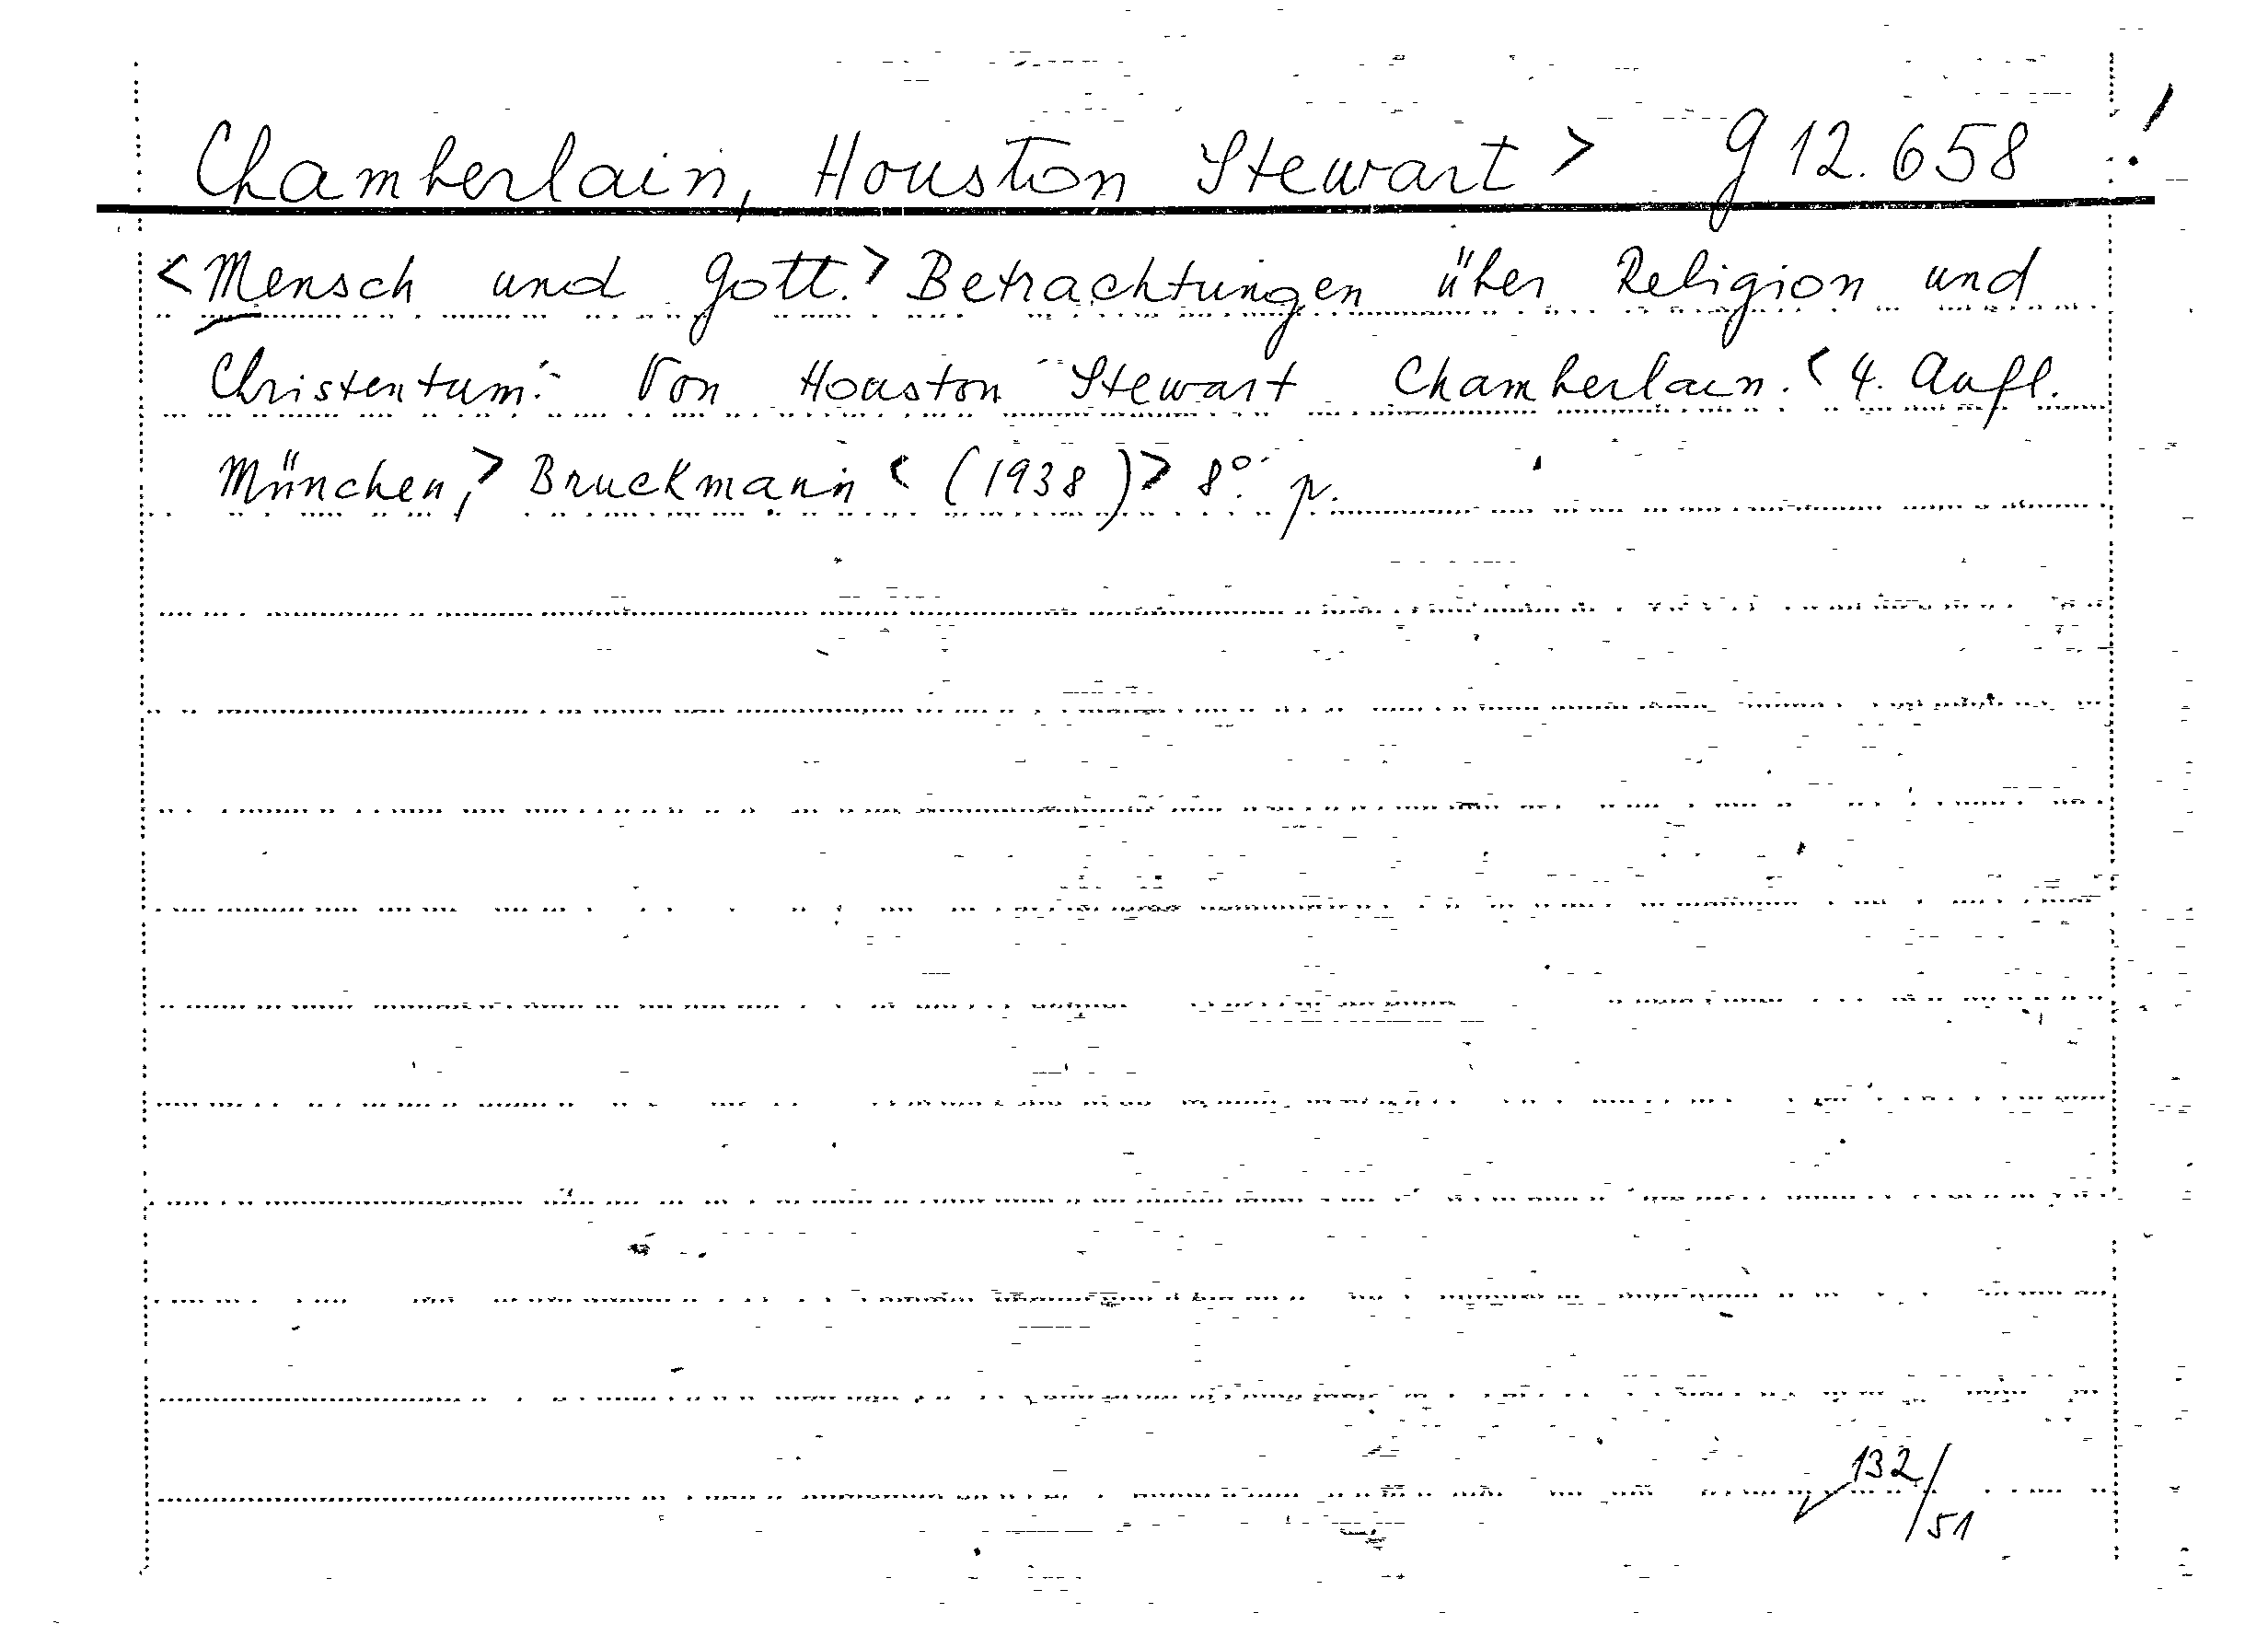 Chamberlain, Houston Stewart > g 12.658 !
<Mensch und Gott.> Betrachtungen über Religion und
Christentum. Von Houston Stewart Chamberlain. < 4. Aufl.
München,> Bruckmann < (1938)> 8°. p.
132/51